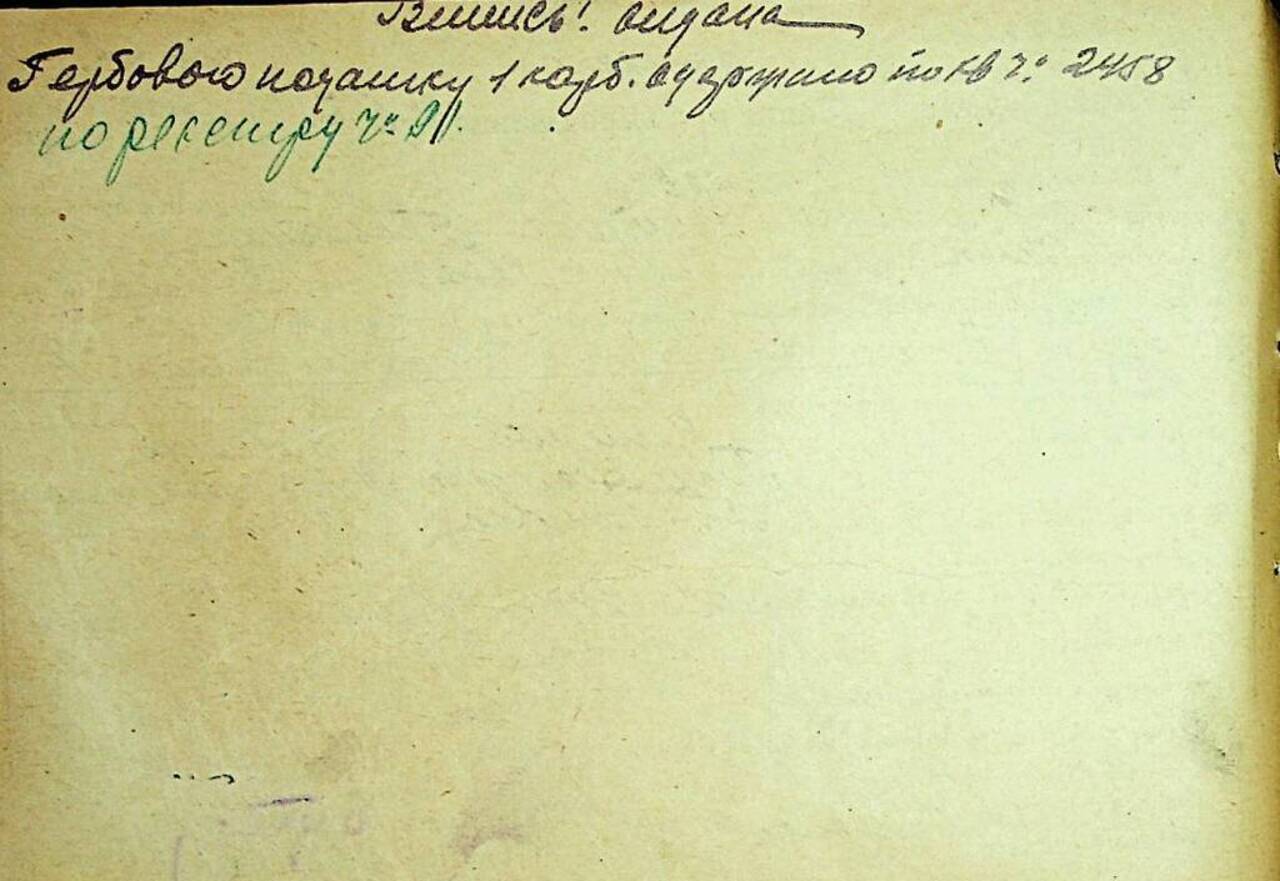 Випись! видана
Гербового податку 1 карб. одержано по кв ч. 2458
по реєстру ч.